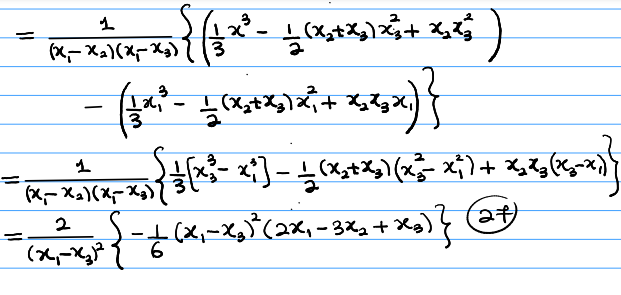 = 1/((x₁-x₂)(x₁-x₃)) { (1/3 x³ - 1/2 (x₂+x₃)x₃² + x₂x₃²)
- (1/3 x₁³ - 1/2 (x₂+x₃)x₁² + x₂x₃x₁) }
= 1/((x₁-x₂)(x₁-x₃)) { 1/3 [x₃³ - x₁³] - 1/2 (x₂+x₃)(x₃² - x₁²) + x₂x₃(x₃-x₁) }
= 2/(x₁-x₃)² { -1/6 (x₁-x₃)² (2x₁ - 3x₂ + x₃) }